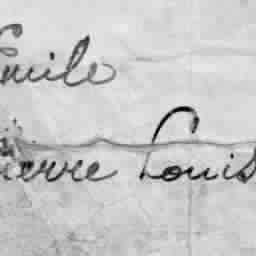 Emile
Pierre Louis